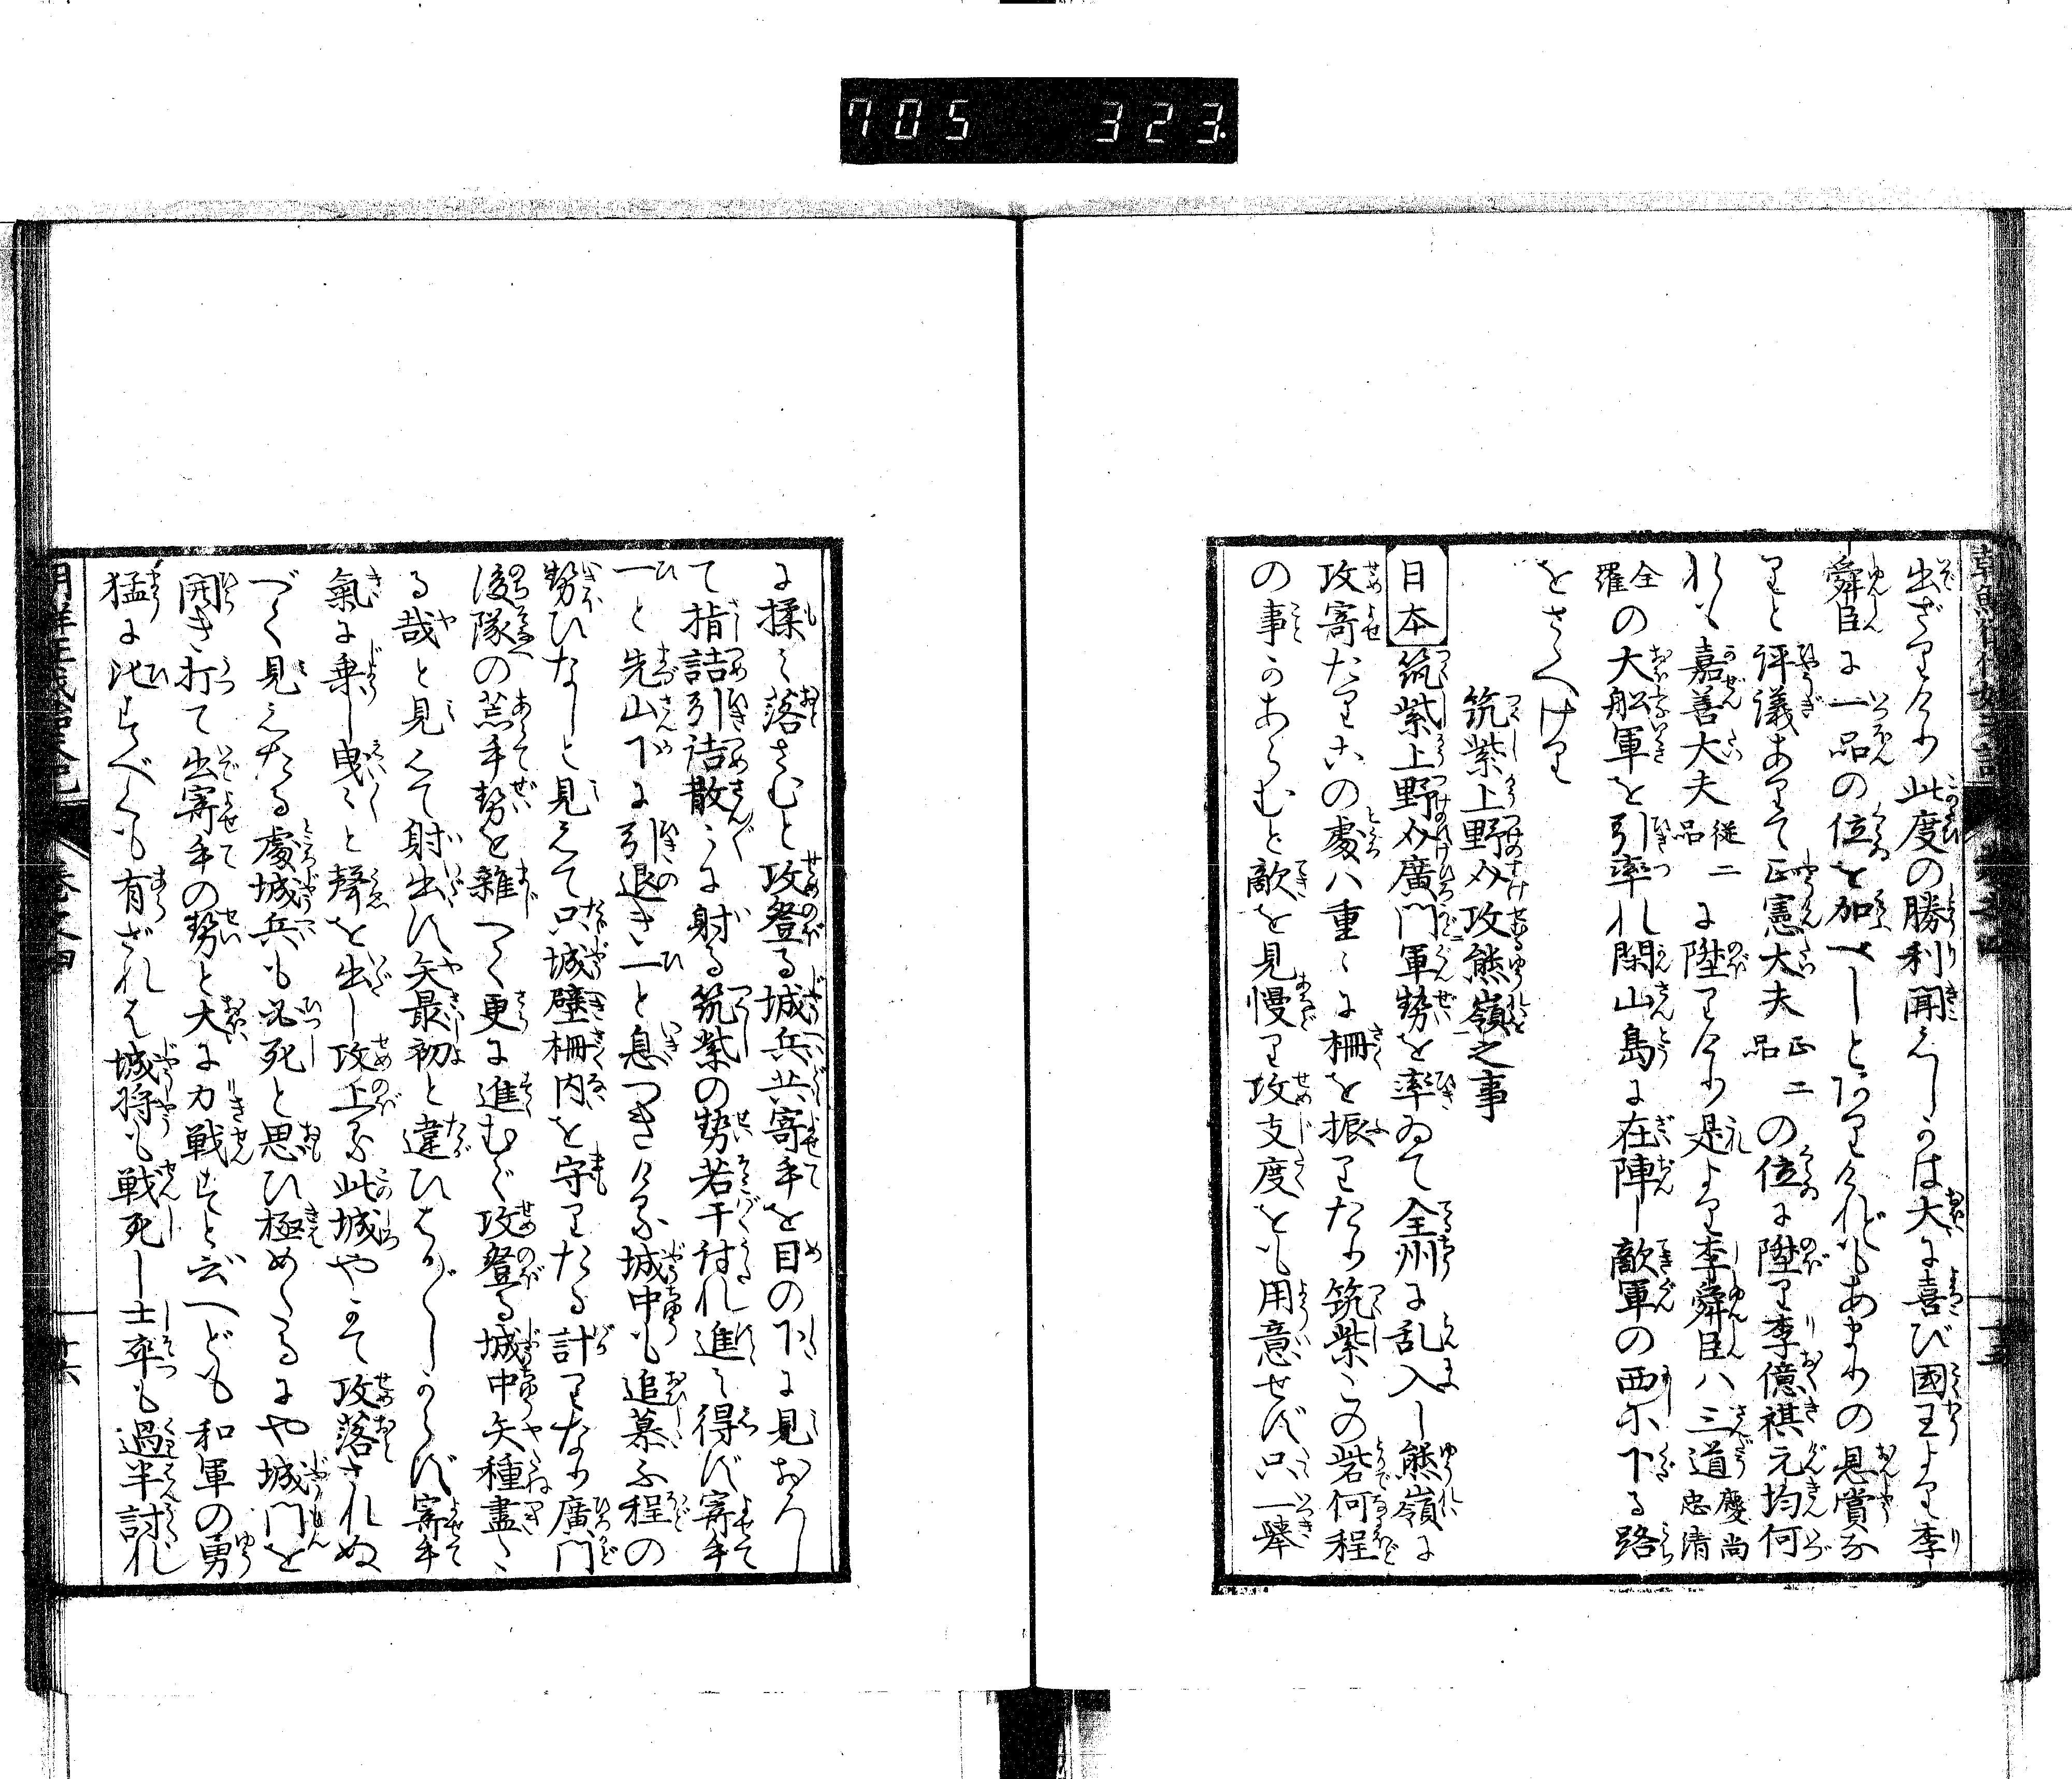 705 323
出ざりけり此度の勝利聞えしかは大に喜び國王より李
舜臣に一品の位を加へしとありけれどもあまりの恩賞な
りと評議ありて正憲大夫正二品の位に陞り李億祺元均何
れも嘉善大夫従二品に陞りけり是より李舜臣ハ三道慶尚忠清
全羅の大舩軍を引率れ閑山島に在陣し敵軍の西に下る路
をさゝへけり
筑紫上野介攻熊嶺之事
日本筑紫上野介廣門軍勢を率ゐて全州に乱入し熊嶺に
攻寄たりこの處ハ重〻に柵を振りたり筑紫この砦何程
の事かあらむと敵を見慢り攻支度をも用意せず只一擧
に揉み落さむと攻登る城兵共寄手を目の下に見おろし
て指詰引詰散〻に射る筑紫の勢若干討れ進み得ず寄手
一と先山下に引退き一と息つきける城中も追慕ふ程の
勢ひなしと見えて只城壁柵内を守りたる計りなり廣門
後隊の荒手勢を雜へて更に進むで攻登る城中矢種盡き
る哉と見えて射出す矢最初と違ひはか〲しからず寄手
氣に乗し曳〻と聲を出し攻上る此城やかて攻落されぬ
べく見えたる處城兵も必死と思ひ極めたるにや城門を
開き打て出寄手の勢と大に力戦すと云へども和軍の勇
猛に比すべくも有ざれは城将も戦死し士卒も過半討れ
十六